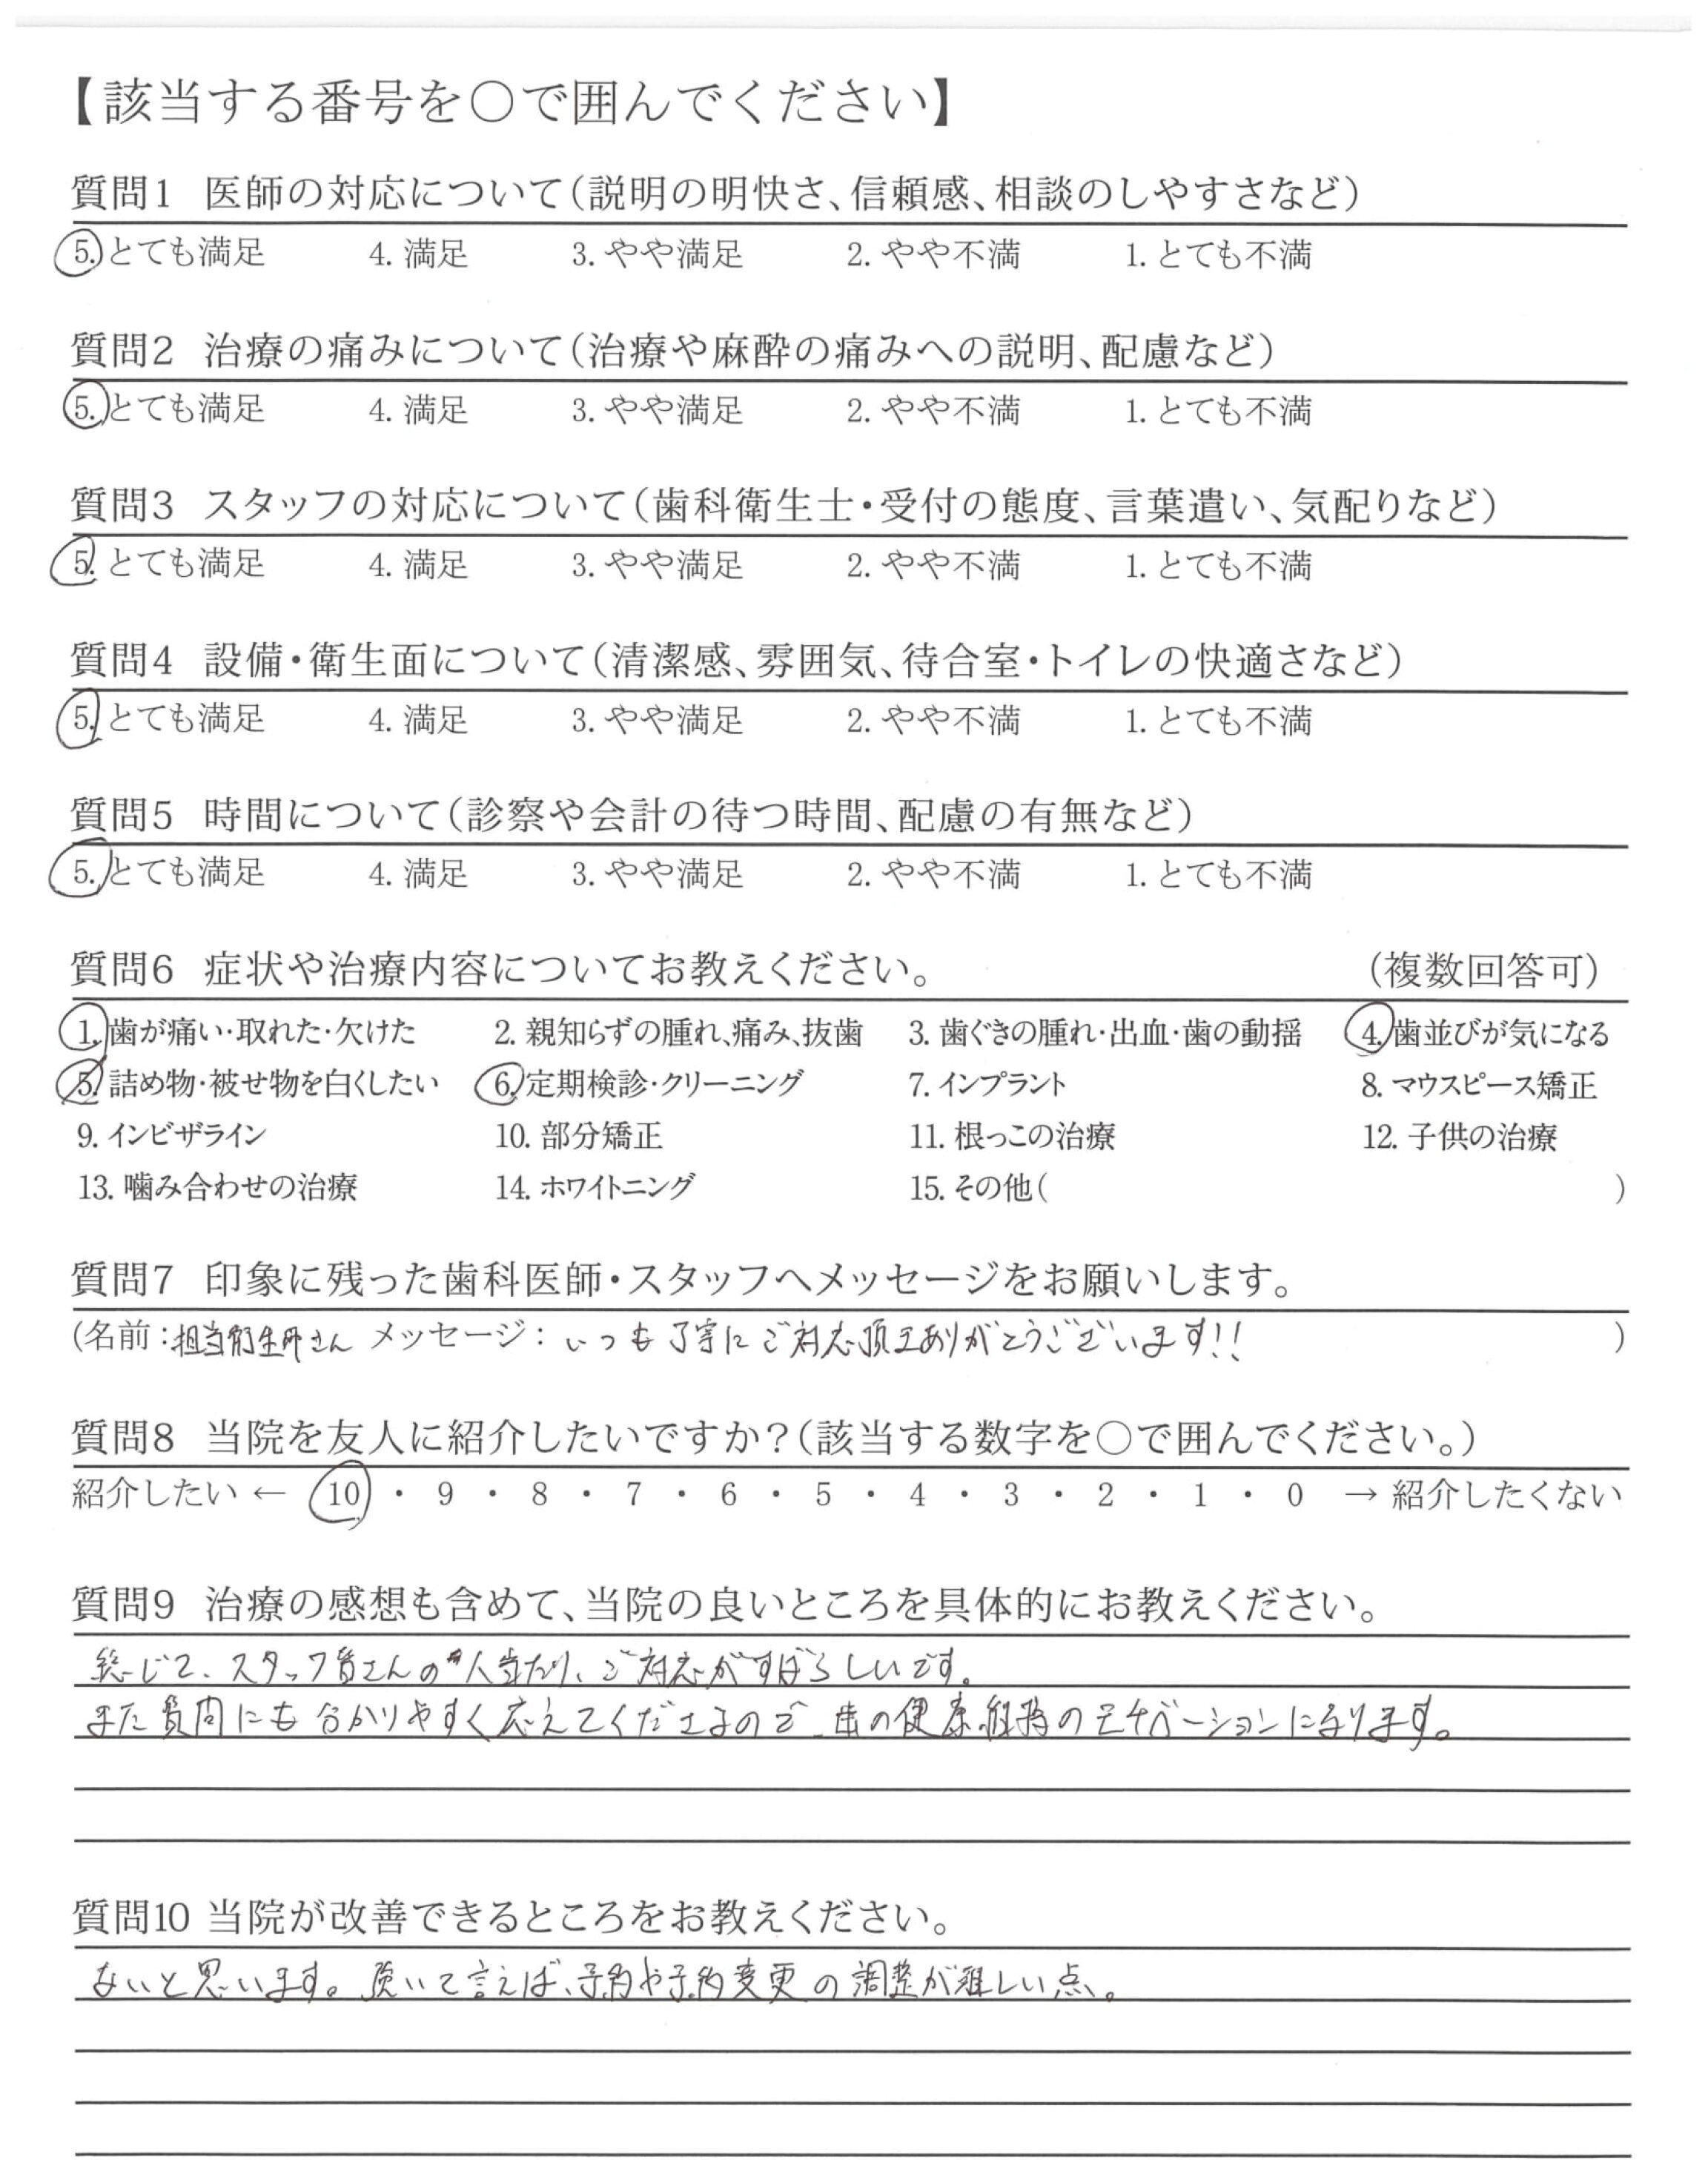 【該当する番号を○で囲んでください】
質問1 医師の対応について(説明の明快さ、信頼感、相談のしやすさなど)
5. とても満足 4. 満足 3. やや満足 2. やや不満 1. とても不満
質問2 治療の痛みについて(治療や麻酔の痛みへの説明、配慮など)
5. とても満足 4. 満足 3. やや満足 2. やや不満 1. とても不満
質問3 スタッフの対応について(歯科衛生士・受付の態度、言葉遣い、気配りなど)
5. とても満足 4. 満足 3. やや満足 2. やや不満 1. とても不満
質問4 設備・衛生面について(清潔感、雰囲気、待合室・トイレの快適さなど)
5. とても満足 4. 満足 3. やや満足 2. やや不満 1. とても不満
質問5 時間について(診察や会計の待つ時間、配慮の有無など)
5. とても満足 4. 満足 3. やや満足 2. やや不満 1. とても不満
質問6 症状や治療内容についてお教えください。 (複数回答可)
1. 歯が痛い・取れた・欠けた 2. 親知らずの腫れ、痛み、抜歯 3. 歯ぐきの腫れ・出血・歯の動揺 4. 歯並びが気になる
5. 詰め物・被せ物を白くしたい 6. 定期検診・クリーニング 7. インプラント 8. マウスピース矯正
9. インビザライン 10. 部分矯正 11. 根っこの治療 12. 子供の治療
13. 噛み合わせの治療 14. ホワイトニング 15. その他( )
質問7 印象に残った歯科医師・スタッフへメッセージをお願いします。
(名前：担当衛生師さん メッセージ：いつも丁寧にご対応頂きありがとうございます!! )
質問8 当院を友人に紹介したいですか？(該当する数字を○で囲んでください。)
紹介したい ← 10 ・ 9 ・ 8 ・ 7 ・ 6 ・ 5 ・ 4 ・ 3 ・ 2 ・ 1 ・ 0 → 紹介したくない
質問9 治療の感想も含めて、当院の良いところを具体的にお教えください。
総じて、スタッフ皆さんの人当たり、ご対応がすばらしいです。
また質問にも分かりやすく応えてくださるので、歯の健康維持のモチベーションになります。
質問10 当院が改善できるところをお教えください。
ないと思います。強いて言えば、予約や予約変更の調整が難しい点。